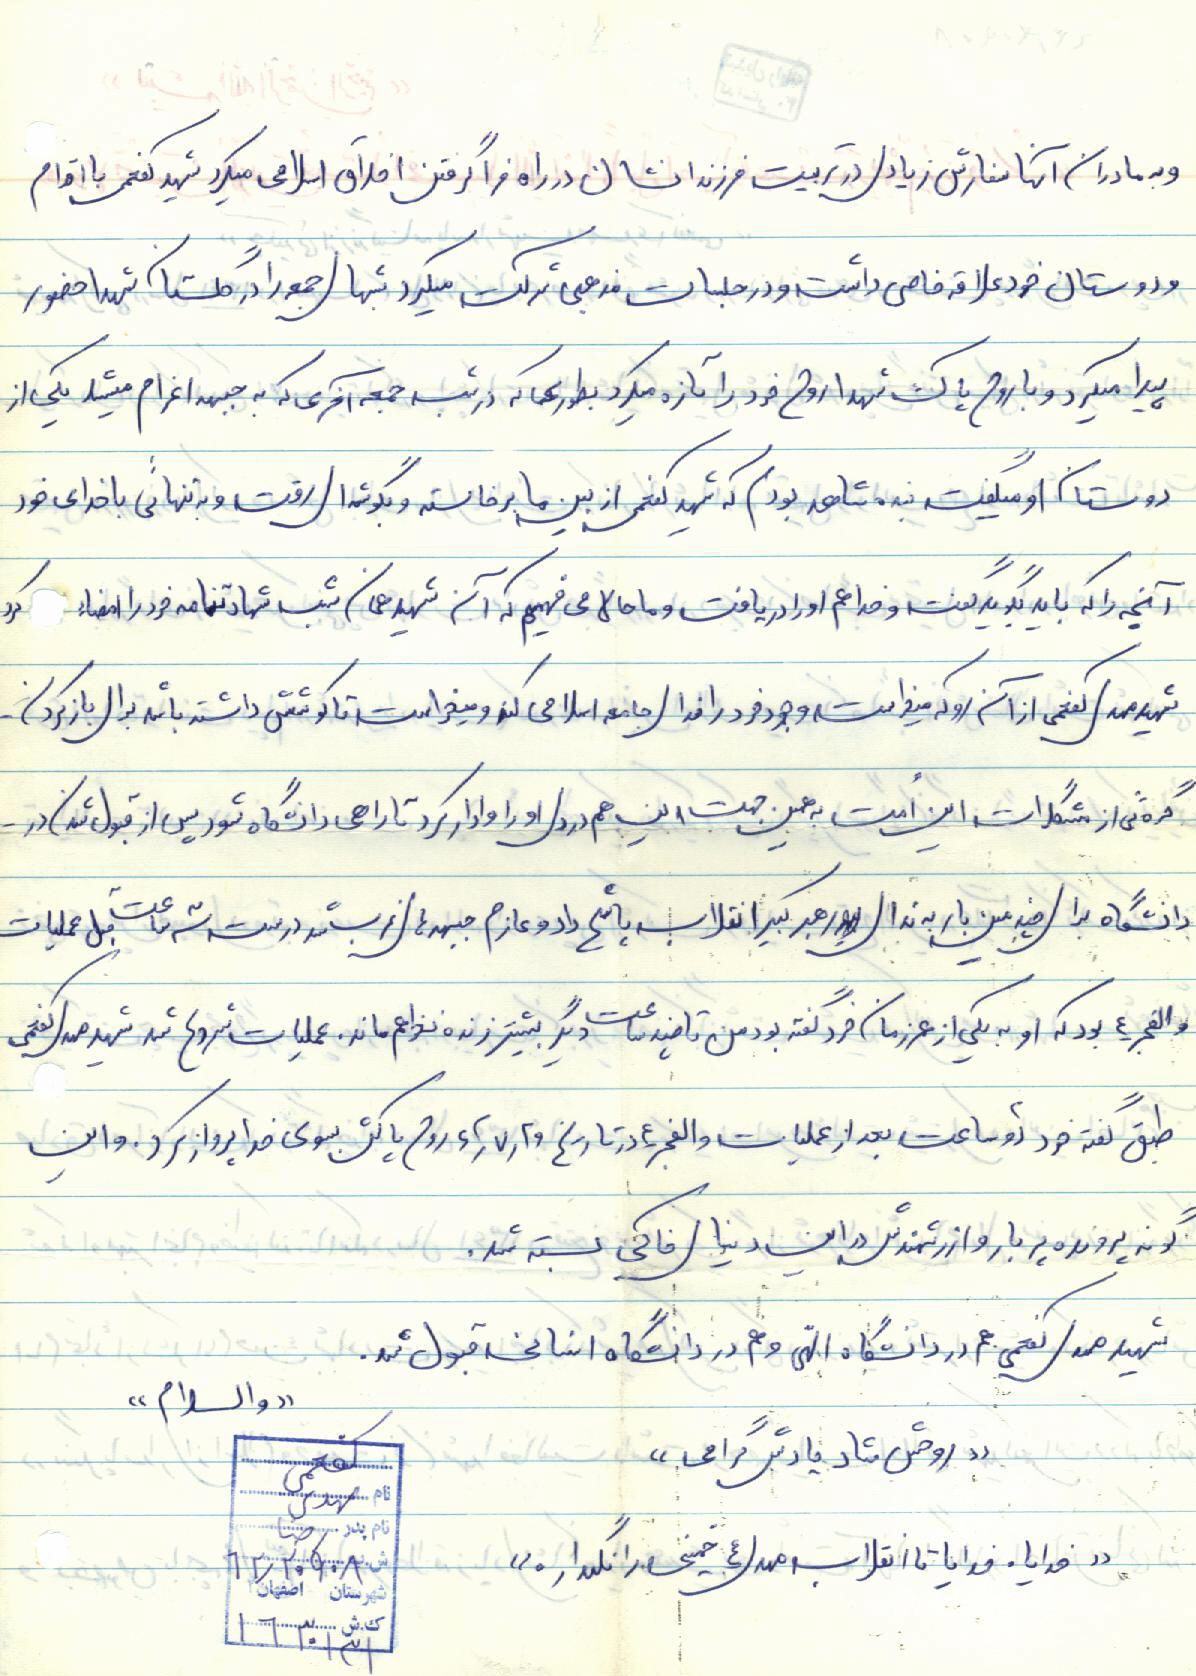 و به مادران آنها سفارش زیادی در تربیت فرزندانشان در راه فراگرفتن اخلاق اسلامی میکرد شهید کفعمی با اقوام
و دوستان خود علاقه خاصی داشت و در جلسات مذهبی شرکت میکرد شبهای جمعه را در گلستان شهدا حضور
پیدا میکرد و با روح پاک شهدا روح خود را تازه میکرد بطوریکه در شب جمعه آخری که به جبهه اعزام میشد یکی از
دوستان او میگفت بنده شاهد بودم که شهید کفعمی از بین ما برخاسته و بگوشه‌ای رفت و به تنهائی با خدای خود
آنچه را که باید بگوید گفت و خدا هم او را دریافت و ما حالا می فهمیم که آن شهید همان شب شهادتنامه خود را امضاء کرد
شهید مهدی کفعمی از آن رو که میخواست وجود خود را فدای جامعه اسلامی کند و میخواست تا کوششی داشته باشد برای باز کردن -
گره‌ئی از مشکلات این اُمت به همین جهت این هم دردی او را وادار کرد تا راهی دانشگاه شود پس از قبول شدن در -
دانشگاه برای چندمین بار به ندای رهبر کبیر انقلاب پاسخ داد و عازم جبهه‌های غرب شد درست سه ساعت قبل عملیات
والفجر ٤ بود که او به یکی از همرزمان خود گفته بود من تا چند ساعت دیگر بیشتر زنده نخواهم ماند. عملیات شروع شد شهید مهدی کفعمی
طبق گفته خود دو ساعت بعد از عملیات والفجر ٤ در تاریخ ۶۲٫۷٫۲۷ روح پاکش بسوی خدا پرواز کرد. و این
گونه پرونده پر بار و ارزشمندش در این دنیای خاکی بسته شد.
شهید مهدی کفعمی هم در دانشگاه الهی و هم در دانشگاه انسانی قبول شد.
« والسلام »
« روحش شاد یادش گرامی »
« خدایا. خدایا تا انقلاب مهدی ع خمینی را نگهدار »
کفعمی
نام مهدی
نام پدر رضا
شهرستان اصفهان
ک.ش